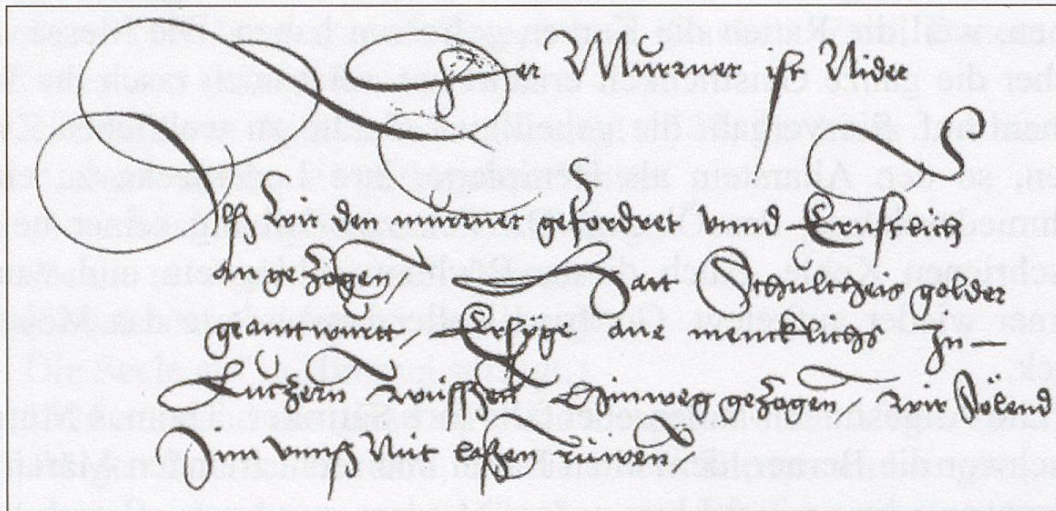 Der Murrner ist Nider
Alß wir den murner gefordret vnnd Ernstlich
an gezogen, Hatt Schultheis golder
geantwurt, Er syge ane mencklichs zu
Lutzern wüssen Hinweg gezogen, wir söllend
Inn vnnß Nüt lassen rüwen